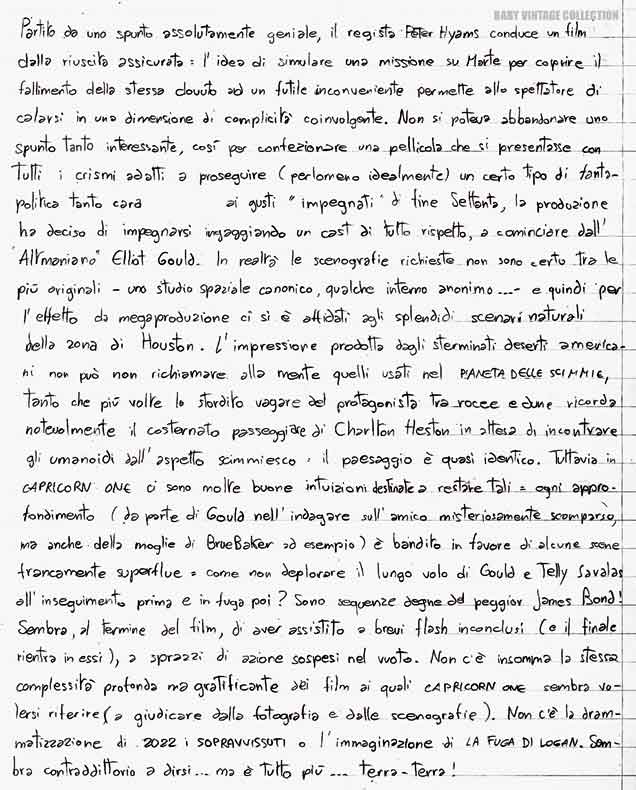 BABY VINTAGE COLLECTION
Partito da uno spunto assolutamente geniale, il regista Peter Hyams conduce un film
dalla riuscita assicurata: l'idea di simulare una missione su Marte per coprire il
fallimento della stessa dovuto ad un futile inconveniente permette allo spettatore di
calarsi in una dimensione di complicità coinvolgente. Non si poteva abbandonare uno
spunto tanto interessante, così per confezionare una pellicola che si presentasse con
tutti i crismi adatti a proseguire (perlomeno idealmente) un certo tipo di fanta-
politica tanto cara ai gusti "impegnati" di fine Settanta, la produzione
ha deciso di impegnarsi ingaggiando un cast di tutto rispetto, a cominciare dall'
"Altmaniano" Elliot Gould. In realtà le scenografie richieste non sono certo tra le
più originali - uno studio spaziale canonico, qualche interno anonimo...- e quindi per
l'effetto da megaproduzione ci si è affidati agli splendidi scenari naturali
della zona di Houston. L'impressione prodotta dagli sterminati deserti america-
ni non può non richiamare alla mente quelli usati nel PIANETA DELLE SCIMMIE,
tanto che più volte lo stordito vagare del protagonista tra rocce e dune ricorda
notevolmente il costernato passeggiare di Charlton Heston in attesa di incontrare
gli umanoidi dall'aspetto scimmiesco: il paesaggio è quasi identico. Tuttavia in
CAPRICORN ONE ci sono molte buone intuizioni destinate a restare tali: ogni appro-
fondimento (da parte di Gould nell'indagare sull'amico misteriosamente scomparso,
ma anche della moglie di BrueBaker ad esempio) è bandito in favore di alcune scene
francamente superflue: come non deplorare il lungo volo di Gould e Telly Savalas
all'inseguimento prima e in fuga poi? Sono sequenze degne del peggior James Bond!
Sembra, al termine del film, di aver assistito a brevi flash inconclusi (e il finale
rientra in essi), a sprazzi di azione sospesi nel vuoto. Non c'è insomma la stessa
complessità profonda ma gratificante dei film ai quali CAPRICORN ONE sembra vo-
lersi riferire (a giudicare dalla fotografia e dalle scenografie). Non c'è la dram-
matizzazione di 2022 i SOPRAVVISSUTI o l'immaginazione di LA FUGA DI LOGAN. Sem-
bra contraddittorio a dirsi... ma è tutto più... terra-terra!